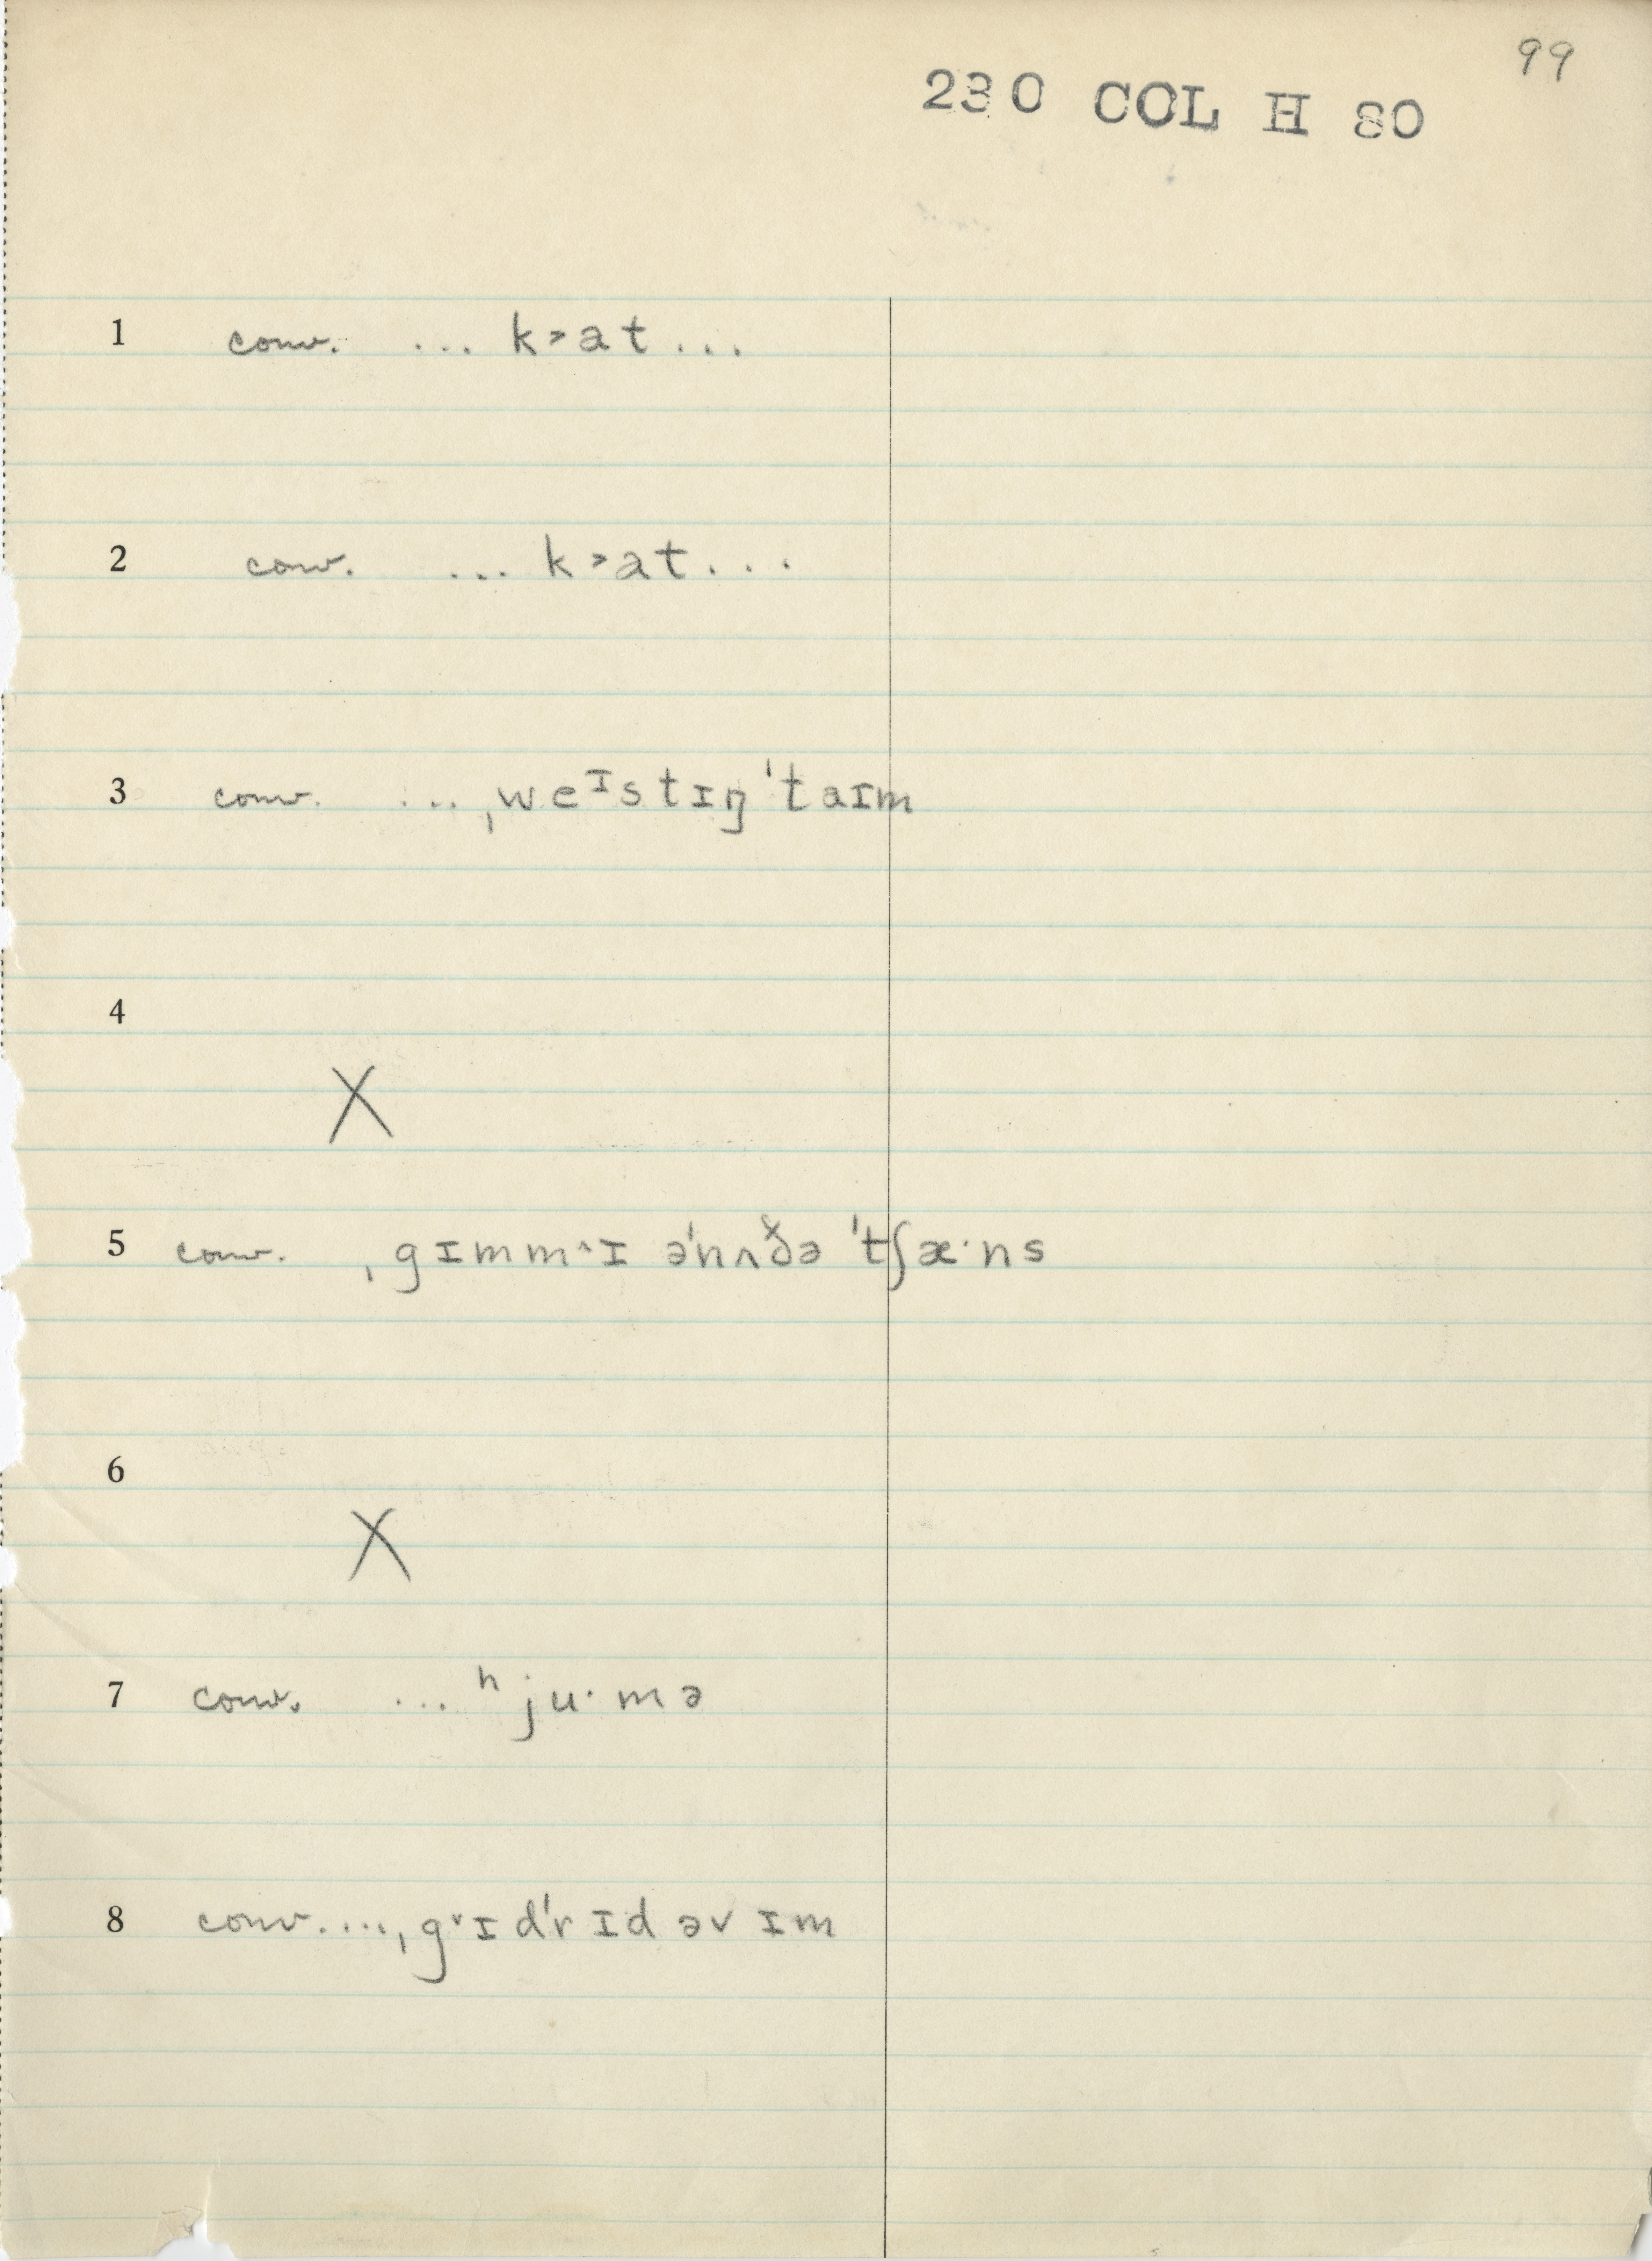 99
230 COL H 80
1 conv. ... k˃at...
2 conv. ... k˃at...
3 conv. ... ˌweᴵstɪŋˈtaɪm
4
X
5 conv. ˌgɪmm˄ɪ əˈnʌðə ˈtʃæ·ns
6
X
7 conv. ... ʰju·mə
8 conv....ˌg˅ɪdˈrɪd əv ɪm